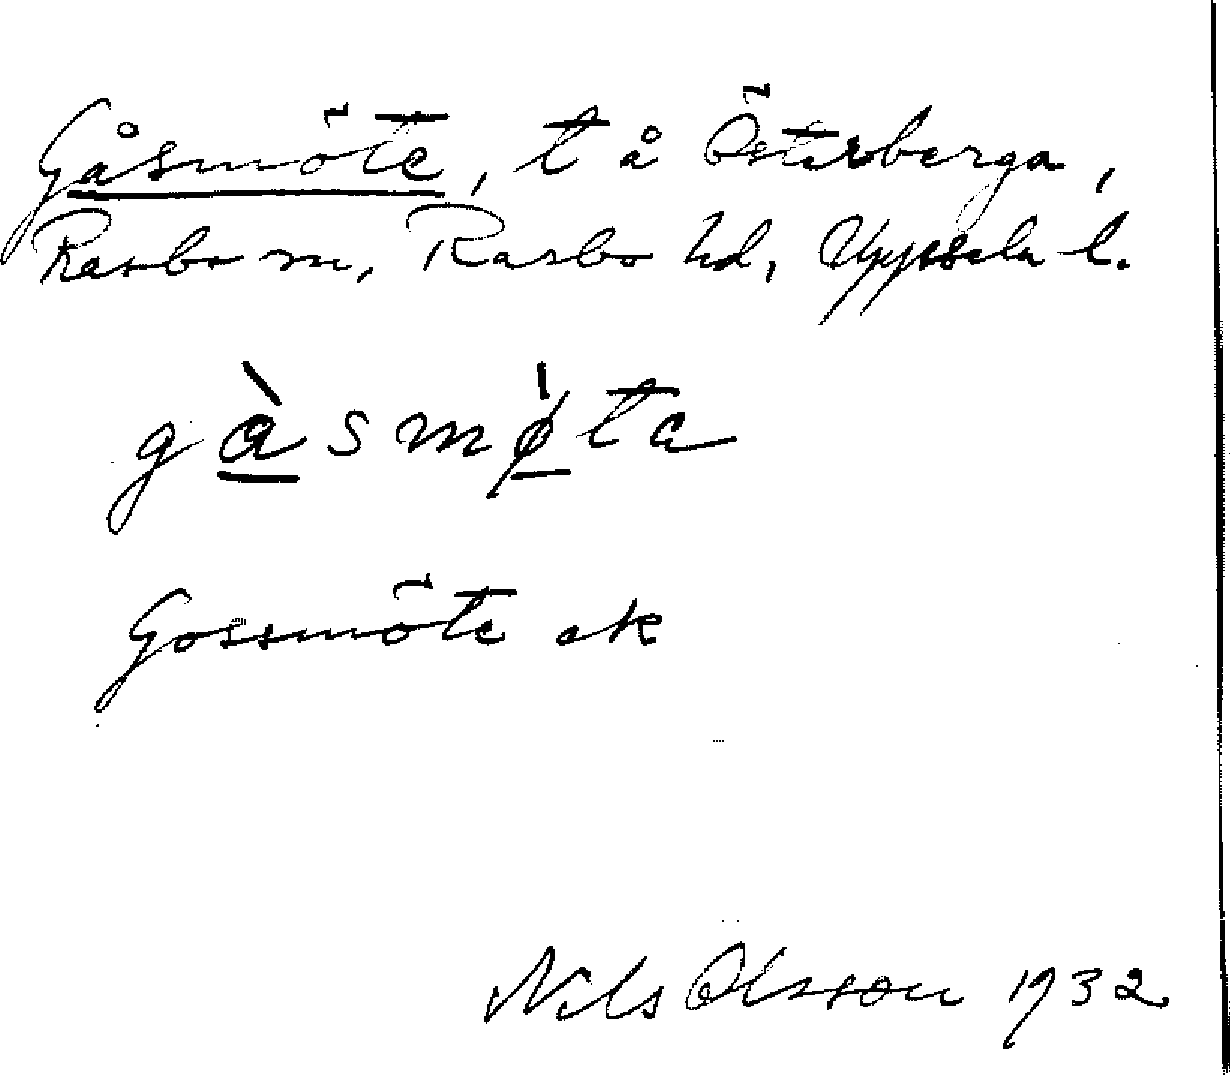 Gåsmöte, t å Österberga,
Rasbo sn, Rasbo hd, Uppsala l.
gàsmø̀ta
Gossmöte ek
Nils Olsson 1932